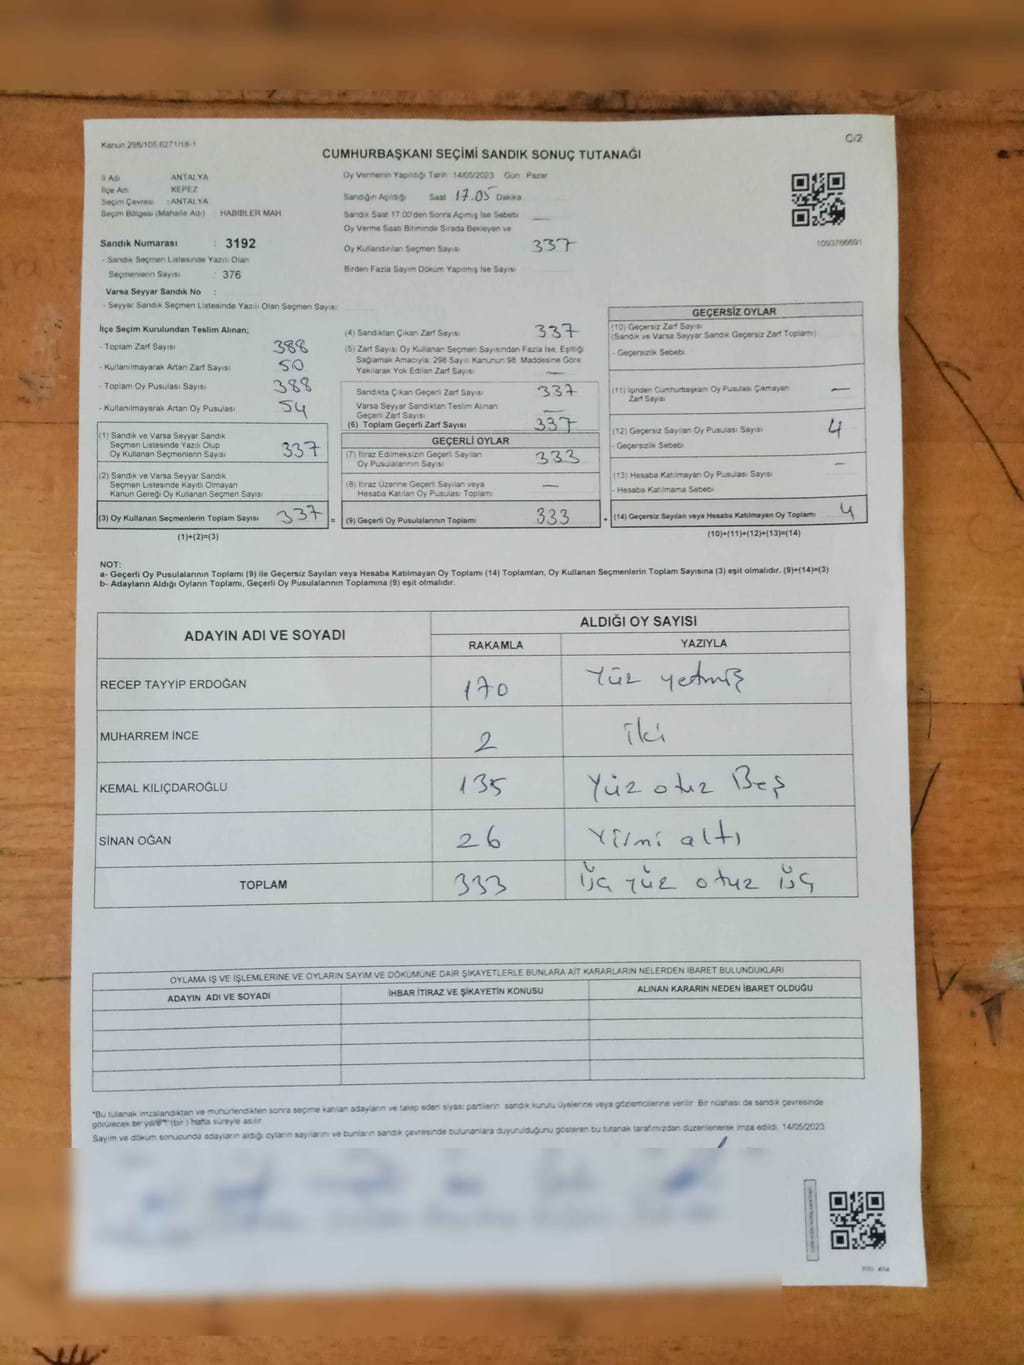 Kanun 298/105,6271/18-1
C/2
CUMHURBAŞKANI SEÇİMİ SANDIK SONUÇ TUTANAĞI
İl Adı ANTALYA
İlçe Adı KEPEZ
Seçim Çevresi : ANTALYA
Seçim Bölgesi (Mahalle Adı) HABİBLER MAH
Sandık Numarası : 3192
- Sandık Seçmen Listesinde Yazılı Olan
Seçmenlerin Sayısı : 376
Varsa Seyyar Sandık No :
- Seyyar Sandık Seçmen Listesinde Yazılı Olan Seçmen Sayısı
Oy Vermenin Yapıldığı Tarih 14/05/2023 Gün Pazar
Sandığın Açıldığı Saat 17.05 Dakika
Sandık Saat 17.00'den Sonra Açmış İse Sebebi —
Oy Verme Saati Bitiminde Sırada Bekleyen ve
Oy Kullandırılan Seçmen Sayısı 337
Birden Fazla Sayım Döküm Yapılmış İse Sayısı
1093766691
İlçe Seçim Kurulundan Teslim Alınan;
- Toplam Zarf Sayısı 388
- Kullanılmayarak Artan Zarf Sayısı 50
- Toplam Oy Pusulası Sayısı 388
- Kullanılmayarak Artan Oy Pusulası 54
(1) Sandık ve Varsa Seyyar Sandık
Seçmen Listesinde Yazılı Olup
Oy Kullanan Seçmenlerin Sayısı 337
(2) Sandık ve Varsa Seyyar Sandık
Seçmen Listesinde Kayıtlı Olmayan
Kanun Gereği Oy Kullanan Seçmen Sayısı
(3) Oy Kullanan Seçmenlerin Toplam Sayısı 337 =
(1)+(2)=(3)
(4) Sandıktan Çıkan Zarf Sayısı 337
(5) Zarf Sayısı Oy Kullanan Seçmen Sayısından Fazla İse, Eşitliği
Sağlamak Amacıyla, 298 Sayılı Kanunun 98. Maddesine Göre
Yakılarak Yok Edilen Zarf Sayısı —
Sandıkta Çıkan Geçerli Zarf Sayısı 337
Varsa Seyyar Sandıktan Teslim Alınan
Geçerli Zarf Sayısı —
(6) Toplam Geçerli Zarf Sayısı 337
GEÇERLİ OYLAR
(7) İtiraz Edilmeksizin Geçerli Sayılan
Oy Pusulalarının Sayısı 333
(8) İtiraz Üzerine Geçerli Sayılan veya
Hesaba Katılan Oy Pusulası Toplamı —
(9) Geçerli Oy Pusulalarının Toplamı 333 +
GEÇERSİZ OYLAR
(10) Geçersiz Zarf Sayısı
(Sandık ve Varsa Seyyar Sandık Geçersiz Zarf Toplamı)
- Geçersizlik Sebebi
(11) İçinden Cumhurbaşkanı Oy Pusulası Çıkmayan
Zarf Sayısı —
(12) Geçersiz Sayılan Oy Pusulası Sayısı 4
- Geçersizlik Sebebi
(13) Hesaba Katılmayan Oy Pusulası Sayısı —
- Hesaba Katılmama Sebebi
(14) Geçersiz Sayılan veya Hesaba Katılmayan Oy Toplamı 4
(10)+(11)+(12)+(13)=(14)
NOT:
a- Geçerli Oy Pusulalarının Toplamı (9) ile Geçersiz Sayılan veya Hesaba Katılmayan Oy Toplamı (14) Toplamları, Oy Kullanan Seçmenlerin Toplam Sayısına (3) eşit olmalıdır. (9)+(14)=(3)
b- Adayların Aldığı Oyların Toplamı, Geçerli Oy Pusulalarının Toplamına (9) eşit olmalıdır.
ADAYIN ADI VE SOYADI ALDIĞI OY SAYISI
RAKAMLA YAZIYLA
RECEP TAYYİP ERDOĞAN 170 Yüz yetmiş
MUHARREM İNCE 2 İki
KEMAL KILIÇDAROĞLU 135 Yüz otuz Beş
SİNAN OĞAN 26 Yirmi altı
TOPLAM 333 Üç yüz otuz üç
OYLAMA İŞ VE İŞLEMLERİNE VE OYLARIN SAYIM VE DÖKÜMÜNE DAİR ŞİKAYETLERLE BUNLARA AİT KARARLARIN NELERDEN İBARET BULUNDUKLARI
ADAYIN ADI VE SOYADI İHBAR İTİRAZ VE ŞİKAYETİN KONUSU ALINAN KARARIN NEDEN İBARET OLDUĞU
"Bu tutanak imzalandıktan ve mühürlendikten sonra seçime katılan adayların ve talep eden siyasi partilerin sandık kurulu üyelerine veya gözlemcilerine verilir. Bir nüshası da sandık çevresinde
görülecek bir yere 1 (bir ) hafta süreyle asılır
Sayım ve döküm sonucunda adayların aldığı oyların sayılarını ve bunların sandık çevresinde bulunanlara duyurulduğunu gösteren bu tutanak tarafımızdan düzenlenerek imza edildi. 14/05/2023